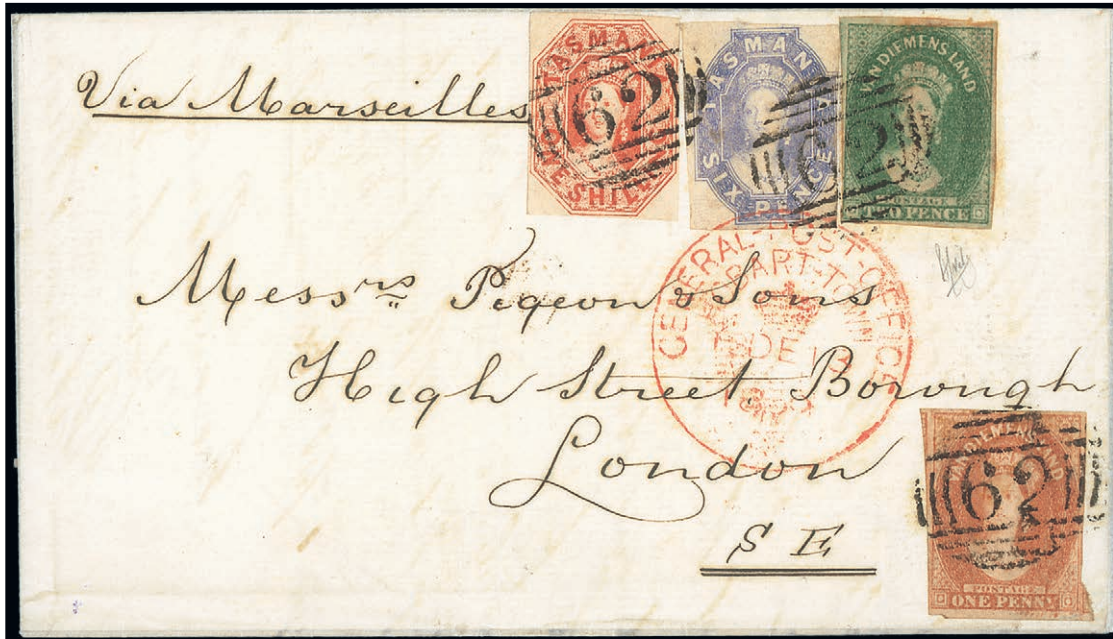 Via Marseilles
TASMANIA
ONE SHILLING
62
TASMANIA
SIX PENCE
62
VAN DIEMENS LAND
POSTAGE
TWO PENCE
GENERAL-POST-OFFICE
HOBART-TOWN
DE 13
Messrs Pigeon & Sons
High Street. Borough
London
S E
VAN DIEMENS LAND
62
POSTAGE
ONE PENNY